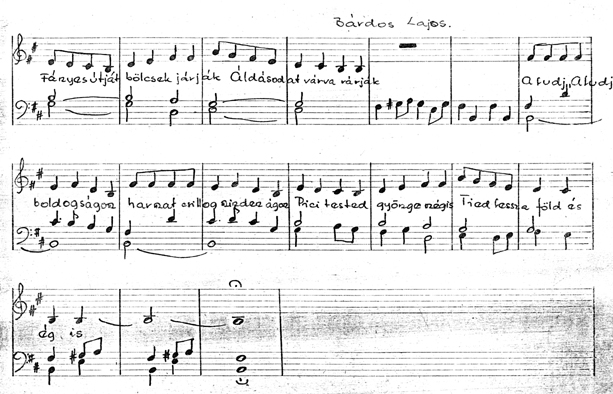 Bárdos Lajos.
Fényes útját bölcsek járják Áldásodat várva várják Aludj, Aludj
boldogságon harmat csillog minden ágon Pici tested gyönge mégis Tied lessz a föld és
ég is